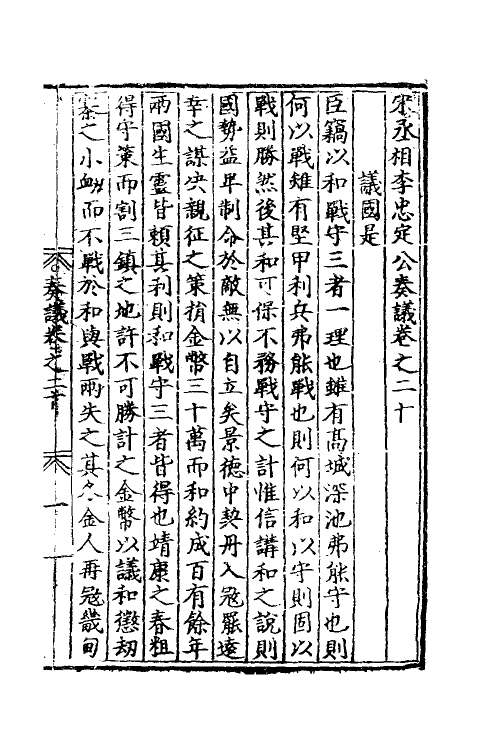 宋丞相李忠定公奏議卷之二十
議國是
臣竊以和戰守三者一理也雖有高城深池弗能守也則
何以戰雖有堅甲利兵弗能戰也則何以和以守則固以
戰則勝然後其和可保不務戰守之計惟信講和之說則
國勢益卑制命於敵無以自立矣景德中契丹入冦罷逺
幸之謀决親征之策捐金幣三十萬而和約成百有餘年
兩國生靈皆賴其利則和戰守三者皆得也靖康之春粗
得守策而割三鎮之地許不可勝計之金幣以議和懲刼
寨之小衂而不戰於和與戰兩失之其冬金人再冦畿甸
奏議卷之二十
一